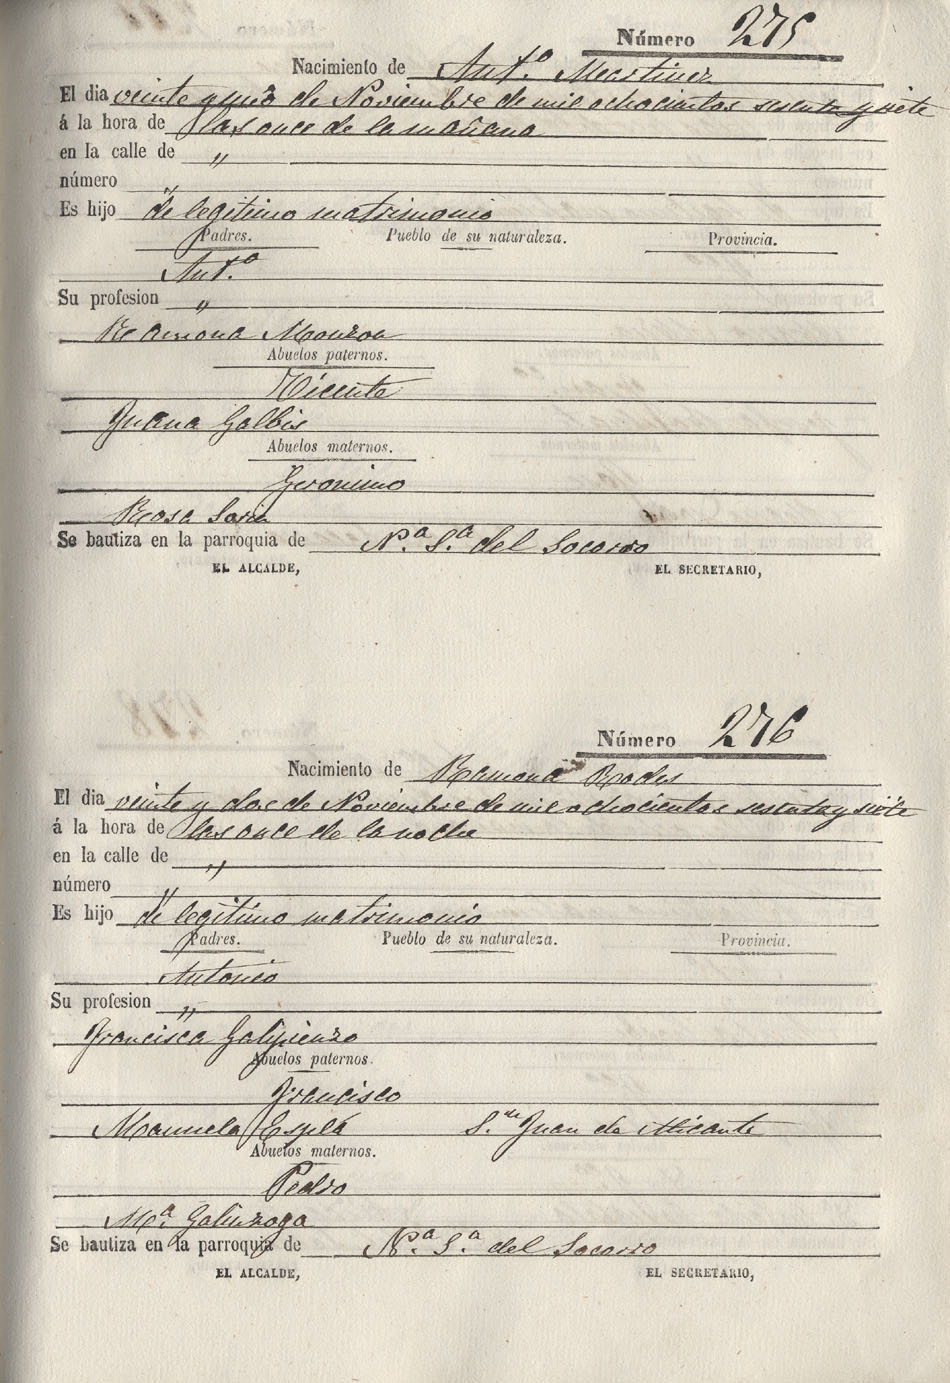 Número 275
Nacimiento de Ant.º Martinez
El dia veinte y uno de Noviembre de mil ochocientos sesenta y siete
á la hora de las once de la mañana
en la calle de "
número "
Es hijo de legitimo matrimonio
Padres. Pueblo de su naturaleza. Provincia.
Ant.º
Su profesion "
Ramona Monzon
Abuelos paternos.
Vicente
Juana Galbis
Abuelos maternos.
Geronimo
Rosa Soria
Se bautiza en la parroquia de N.ª S.ª del Socorro
EL ALCALDE, EL SECRETARIO,
Número 276
Nacimiento de Ramona Rodes
El dia veinte y dos de Noviembre de mil ochocientos sesenta y siete
á la hora de las once de la noche
en la calle de "
número "
Es hijo de legitimo matrimonio
Padres. Pueblo de su naturaleza. Provincia.
Antonio
Su profesion "
Francisca Galipienzo
Abuelos paternos.
Francisco
Manuela Esplá S. Juan de Alicante
Abuelos maternos.
Pedro
M.ª Galinzoga
Se bautiza en la parroquia de N.ª S.ª del Socorro
EL ALCALDE, EL SECRETARIO,